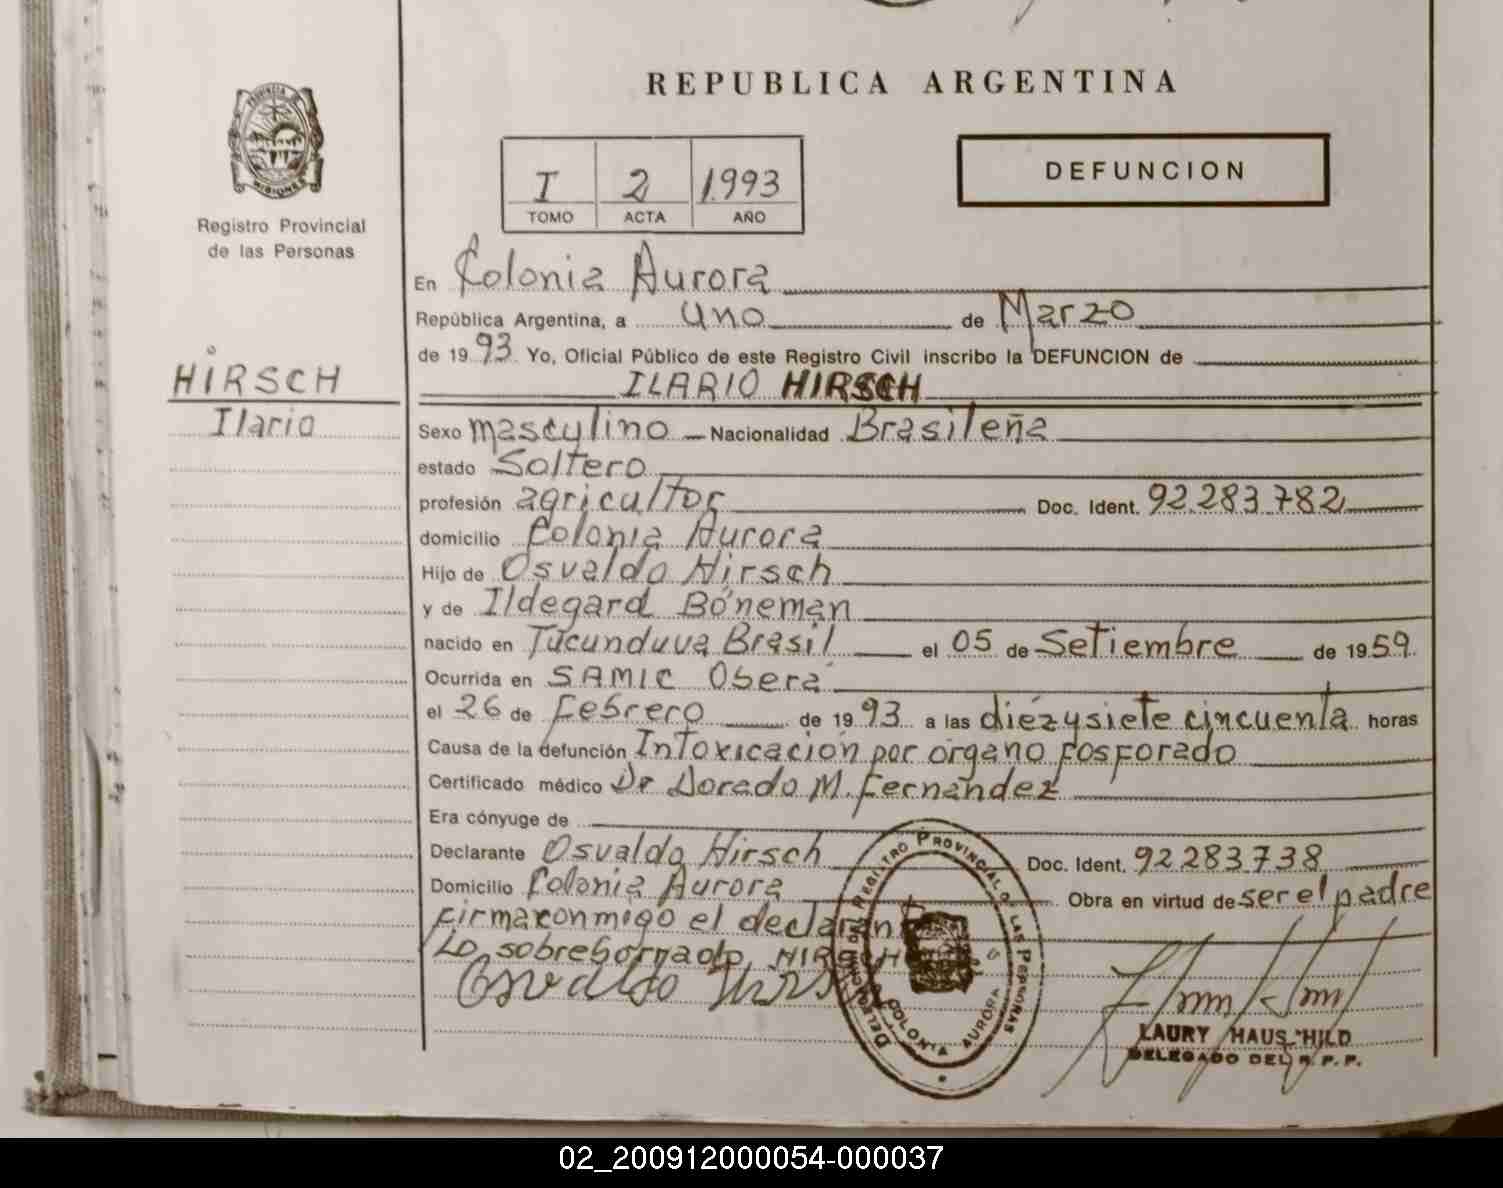 REPUBLICA ARGENTINA
PROVINCIA DE
MISIONES
Registro Provincial
de las Personas
I 2 1.993
TOMO ACTA AÑO
DEFUNCION
En Colonia Aurora
República Argentina, a uno de Marzo
de 1993. Yo, Oficial Público de este Registro Civil inscribo la DEFUNCION de
ILARIO HIRSCH
HIRSCH
Ilario
Sexo masculino Nacionalidad Brasileña
estado Soltero
profesión agricultor Doc. Ident. 92.283.782
domicilio Colonia Aurora
Hijo de Osvaldo Hirsch
y de Ildegard Bóneman
nacido en Tucunduva Brasil el 05 de Setiembre de 1959.
Ocurrida en SAMIC Oberá
el 26 de Febrero de 1993 a las diezysiete cincuenta horas
Causa de la defunción Intoxicación por órgano fosforado
Certificado médico Dr Dorado M. Fernández
Era cónyuge de
Declarante Osvaldo Hirsch Doc. Ident. 92283738
Domicilio Colonia Aurora Obra en virtud de ser el padre
firmaconmigo el declarante
Lo sobreborrado, HIRSCH
Osvaldo Hirsch
DELEGACION DEL REGISTRO PROVINCIAL DE LAS PERSONAS
COLONIA AURORA
LAURY HAUS HILD
DELEGADO DEL R.P.P.
02_200912000054-000037